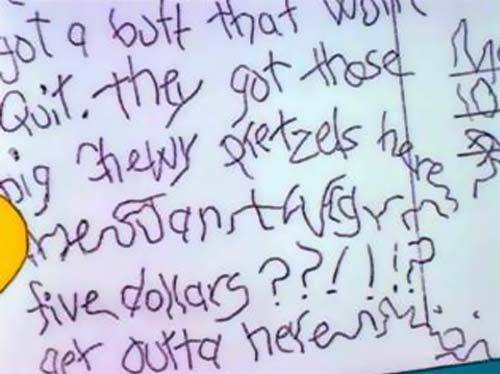 got a butt that won't
Quit. they got those
big chewy pretzels here
five dollars??!!!?
get outta here